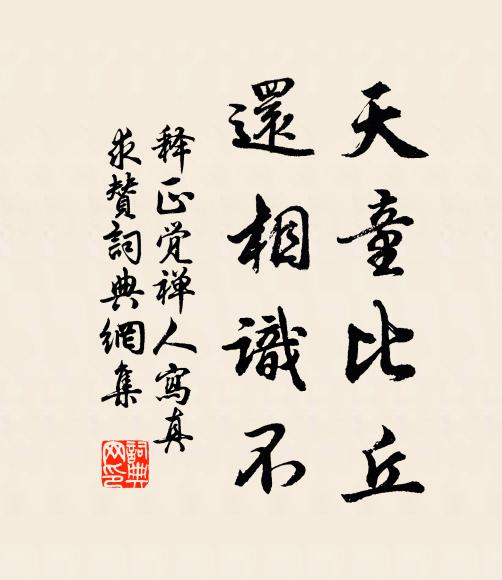 天童比丘
還相識不
释正觉禅人寫真
求赞詞典網集
詞典
网印